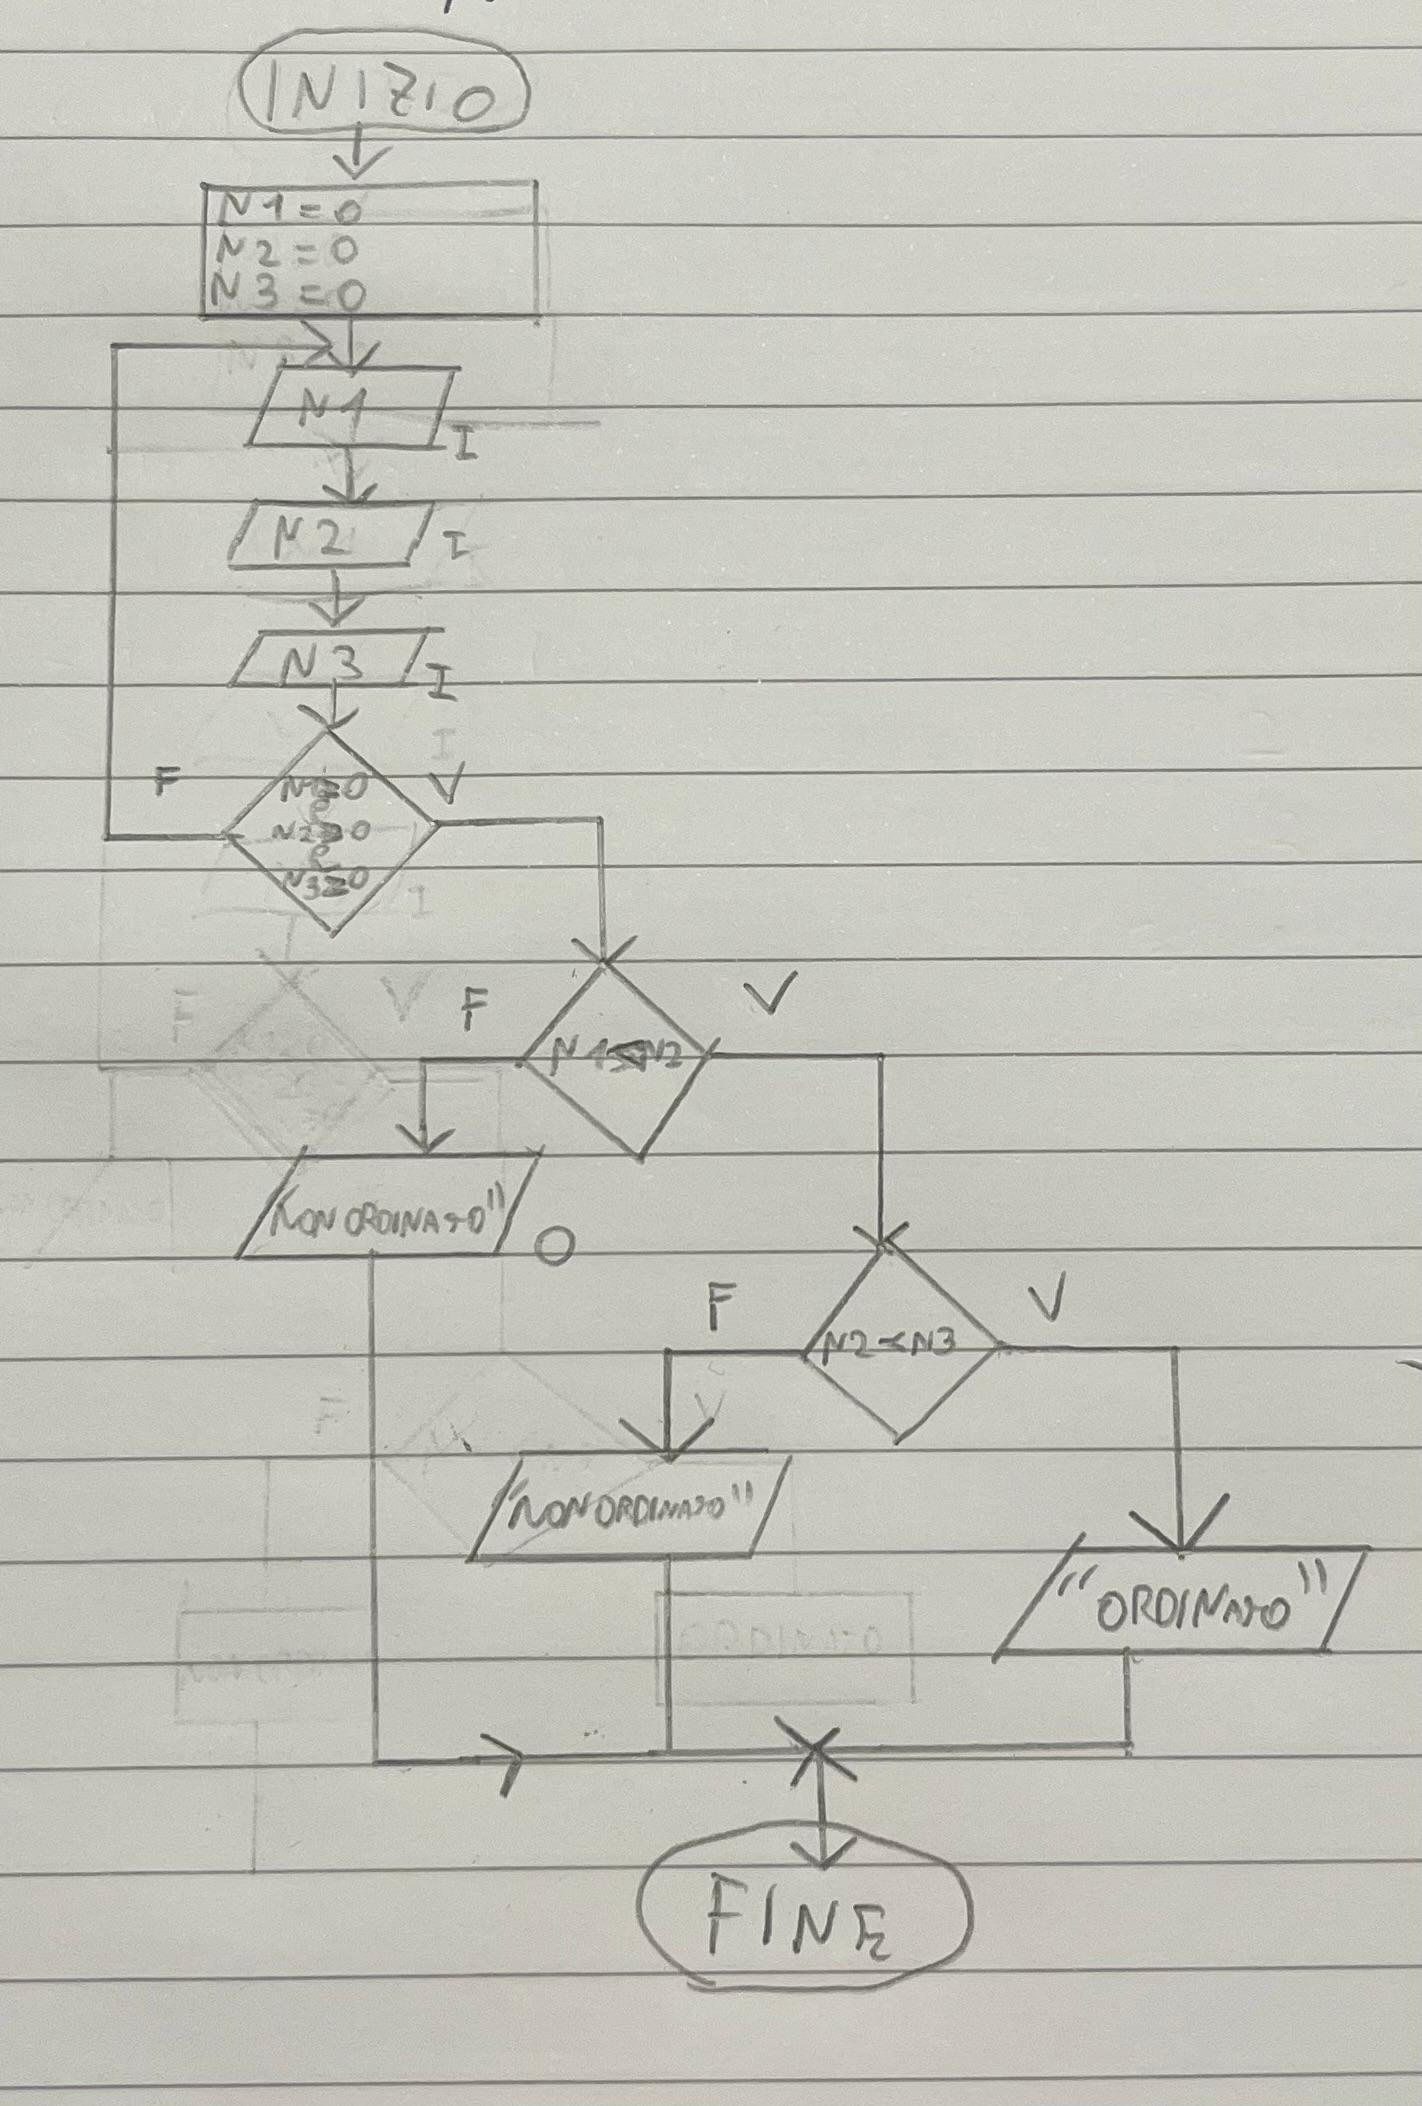 INIZIO
N1=0
N2=0
N3=0
N1
I
N2
I
N3
I
F
V
N1≥0
e
N2≥0
e
N3≥0
F
V
N1≤N2
"NON ORDINATO"
O
F
V
N2<N3
"NON ORDINATO"
"ORDINATO"
FINE